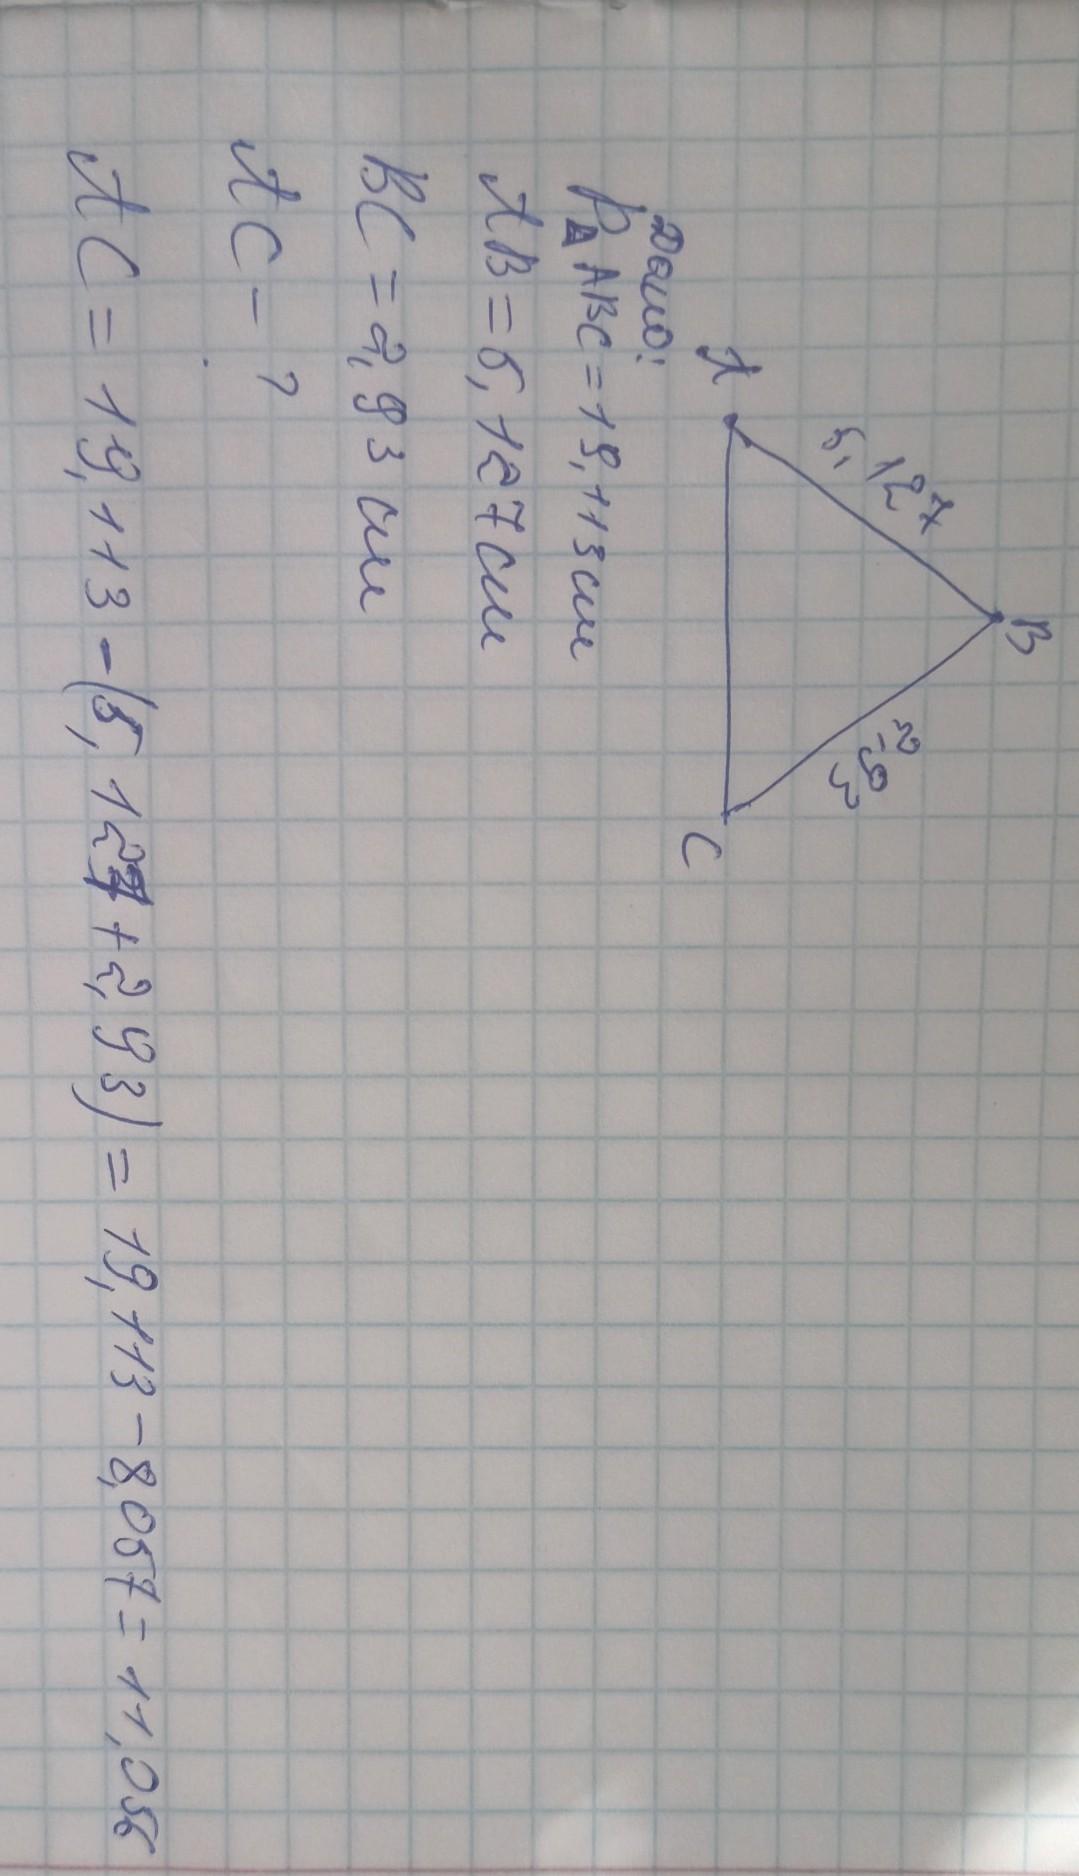 B
5,127
2,93
A
C
Дано:
P▵ABC = 19,113 см
AB = 5,127 см
BC = 2,93 см
AC - ?
AC = 19,113 - (5,127 + 2,93) = 19,113 - 8,057 = 11,056